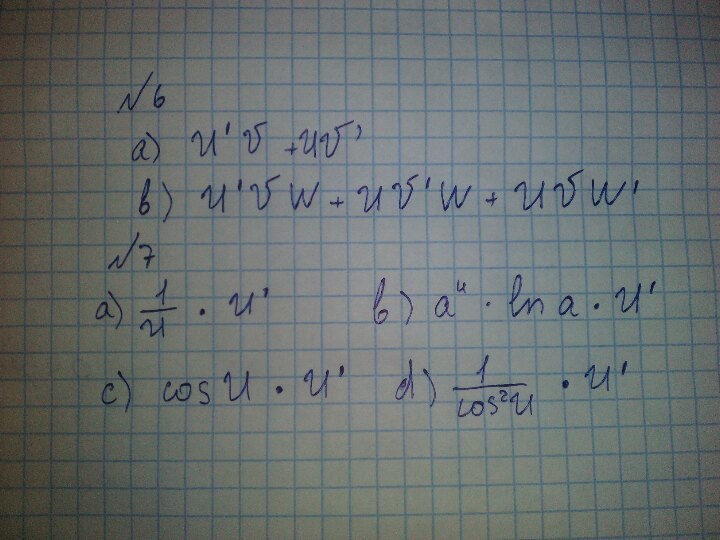 №6
a) u'v + uv'
b) u'vw + uv'w + uvw'
№7
a) 1/u · u' b) a^u · ln a · u'
c) cos u · u' d) 1/cos²u · u'